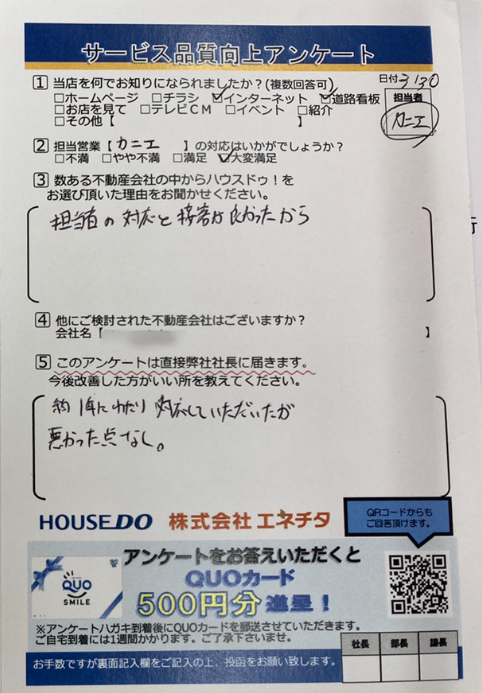 サービス品質向上アンケート
日付 3/30
1 当店を何でお知りになられましたか?(複数回答可)
□ホームページ □チラシ ☑インターネット ☑道路看板
□お店を見て □テレビCM □イベント □紹介
□その他【 】
担当者
カニエ
2 担当営業【カニエ 】の対応はいかがでしょうか?
□不満 □やや不満 □満足 ☑大変満足
3 数ある不動産会社の中からハウスドゥ!を
お選び頂いた理由をお聞かせください。
担当者の対応と接客が良かったから
4 他にご検討された不動産会社はございますか?
会社名【 】
5 このアンケートは直接弊社社長に届きます。
今後改善した方がいい所を教えてください。
約1年にわたり対応していただいたが
悪かった点なし。
HOUSEDO 株式会社 エネチタ
QRコードからも
ご回答頂けます。
アンケートをお答えいただくと
QUOカード
500円分 進呈!
QUO
SMILE
※アンケートハガキ到着後にQUOカードを郵送させていただきます。
ご自宅到着には1週間かかります。ご了承下さいませ。
社長 部長 課長
お手数ですが裏面記入欄をご記入の上、投函をお願い致します。